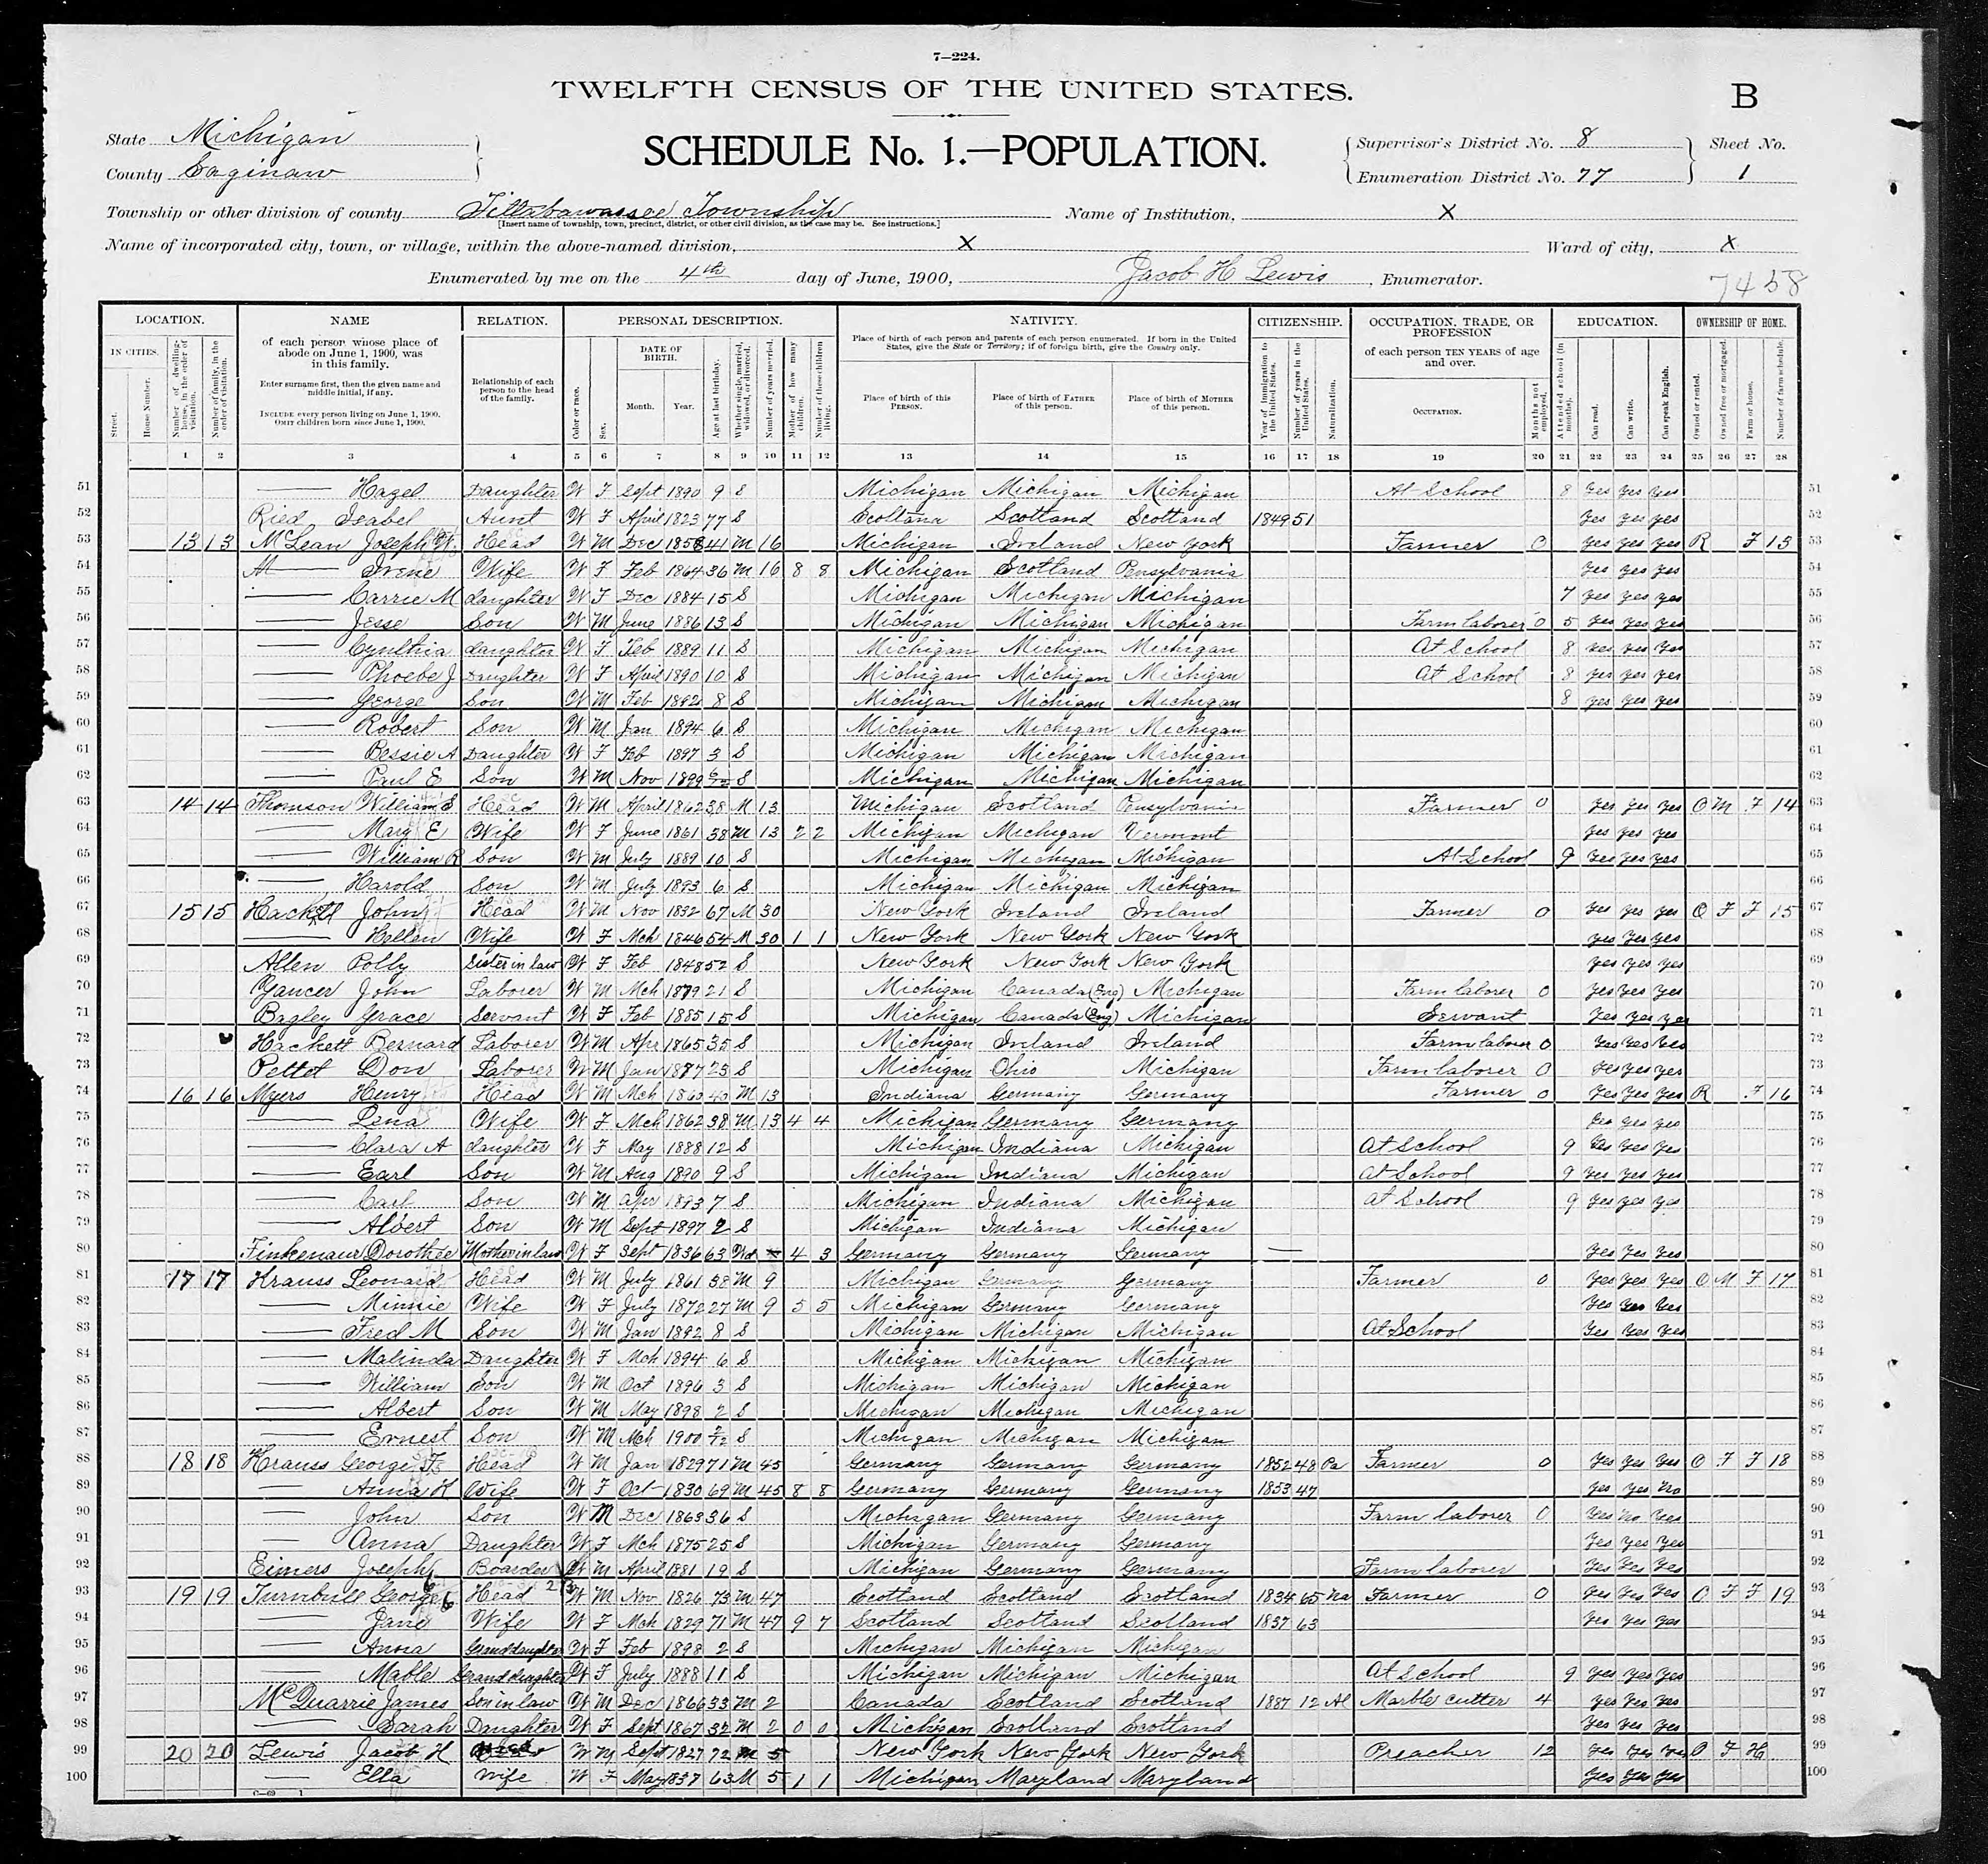 7—224.
TWELFTH CENSUS OF THE UNITED STATES.
B
State Michigan
County Saginaw
SCHEDULE No. 1.—POPULATION.
Supervisor's District No. 8
Enumeration District No. 77
Sheet No.
1
Township or other division of county Tittabawassee Township Name of Institution, X
[Insert name of township, town, precinct, district, or other civil division, as the case may be. See instructions.]
Name of incorporated city, town, or village, within the above-named division, X Ward of city, X
Enumerated by me on the 4th day of June, 1900, Jacob H Lewis, Enumerator.
7458
LOCATION. NAME RELATION. PERSONAL DESCRIPTION. NATIVITY. CITIZENSHIP. OCCUPATION, TRADE, OR PROFESSION EDUCATION. OWNERSHIP OF HOME.
IN CITIES.
Street.
House Number.
Number of dwelling-house, in the order of visitation.
Number of family, in the order of visitation.
of each person whose place of abode on June 1, 1900, was in this family.
Enter surname first, then the given name and middle initial, if any.
INCLUDE every person living on June 1, 1900.
OMIT children born since June 1, 1900.
Relationship of each person to the head of the family.
Color or race.
Sex.
DATE OF BIRTH.
Month. Year.
Age at last birthday.
Whether single, married, widowed, or divorced.
Number of years married.
Mother of how many children.
Number of these children living.
Place of birth of each person and parents of each person enumerated. If born in the United States, give the State or Territory; if of foreign birth, give the Country only.
Place of birth of this PERSON.
Place of birth of FATHER of this person.
Place of birth of MOTHER of this person.
Year of immigration to the United States.
Number of years in the United States.
Naturalization.
of each person TEN YEARS of age and over.
OCCUPATION.
Months not employed.
Attended school (in months).
Can read.
Can write.
Can speak English.
Owned or rented.
Owned free or mortgaged.
Farm or house.
Number of farm schedule.
1 2 3 4 5 6 7 8 9 10 11 12 13 14 15 16 17 18 19 20 21 22 23 24 25 26 27 28
51 — Hazel Daughter W F Sept 1890 9 S Michigan Michigan Michigan At School 8 Yes Yes Yes 51
52 Ried Isabel Aunt W F April 1823 77 S Scotland Scotland Scotland 1849 51 Yes Yes yes 52
53 13 13 McLean Joseph W Head W M Dec 1858 41 M 16 Michigan Ireland New York Farmer 0 Yes Yes Yes R F 13 53
54 M — Irene Wife W F Feb 1864 36 M 16 8 8 Michigan Scotland Pensylvania Yes Yes Yes 54
55 — Carrie M daughter W F Dec 1884 15 S Michigan Michigan Michigan 7 yes yes yes 55
56 — Jesse Son W M June 1886 13 S Michigan Michigan Michigan Farm laborer 0 5 Yes Yes Yes 56
57 — Cynthia daughter W F Feb 1889 11 S Michigan Michigan Michigan At School 8 Yes Yes Yes 57
58 — Phoebe J Daughter W F April 1890 10 S Michigan Michigan Michigan At School 8 yes yes yes 58
59 — George Son W M Feb 1892 8 S Michigan Michigan Michigan 8 yes yes yes 59
60 — Robert Son W M Jan 1894 6 S Michigan Michigan Michigan 60
61 — Bessie A Daughter W F Feb 1897 3 S Michigan Michigan Michigan 61
62 — Paul E Son W M Nov 1899 6/12 S Michigan Michigan Michigan 62
63 14 14 Thomson William S Head W M April 1862 38 M 13 Michigan Scotland Pensylvania Farmer 0 Yes Yes Yes O M F 14 63
64 — Mary E Wife W F June 1861 38 M 13 2 2 Michigan Michigan Vermont yes yes yes 64
65 — William R Son W M July 1889 10 S Michigan Michigan Michigan At School 9 Yes Yes Yes 65
66 — Harold Son W M July 1893 6 S Michigan Michigan Michigan 66
67 15 15 Hackett John Head W M Nov 1832 67 M 30 New York Ireland Ireland Farmer 0 Yes Yes Yes O F F 15 67
68 — Hellen Wife W F Mch 1846 54 M 30 1 1 New York New York New York yes Yes yes 68
69 Allen Polly Sister in law W F Feb 1848 52 S New York New York New York Yes Yes Yes 69
70 Yancer John Laborer W M Mch 1879 21 S Michigan Canada (Eng) Michigan Farm laborer 0 Yes Yes Yes 70
71 Bagley Grace Servant W F Feb 1885 15 S Michigan Canada (Eng) Michigan Servant Yes Yes Yes 71
72 Hackett Bernard Laborer W M Apr 1865 35 S Michigan Ireland Ireland Farm laborer 0 Yes Yes Yes 72
73 Peltet Don Laborer W M Jan 1877 23 S Michigan Ohio Michigan Farm laborer 0 Yes yes yes 73
74 16 16 Myers Henry Head W M Mch 1860 40 M 13 Indiana Germany Germany Farmer 0 Yes Yes Yes R F 16 74
75 — Lena Wife W F Mch 1862 38 M 13 4 4 Michigan Germany Germany Yes yes yes 75
76 — Clara A daughter W F May 1888 12 S Michigan Indiana Michigan At School 9 Yes Yes Yes 76
77 — Earl Son W M Aug 1890 9 S Michigan Indiana Michigan At School 9 Yes Yes Yes 77
78 — Carl Son W M Apr 1893 7 S Michigan Indiana Michigan At School 9 Yes Yes Yes 78
79 — Albert Son W M Sept 1897 2 S Michigan Indiana Michigan 79
80 Finkenaur Dorothae Mother in law W F Sept 1836 63 Wd 4 3 Germany Germany Germany — Yes Yes Yes 80
81 17 17 Krauss Leonard Head W M July 1861 38 M 9 Michigan Germany Germany Farmer 0 Yes Yes Yes O M F 17 81
82 — Minnie Wife W F July 1872 27 M 9 5 5 Michigan Germany Germany Yes Yes Yes 82
83 — Fred M Son W M Jan 1892 8 S Michigan Michigan Michigan At School Yes Yes Yes 83
84 — Malinda Daughter W F Mch 1894 6 S Michigan Michigan Michigan 84
85 — William Son W M Oct 1896 3 S Michigan Michigan Michigan 85
86 — Albert Son W M May 1898 2 S Michigan Michigan Michigan 86
87 — Ernest Son W M Mch 1900 2/12 S Michigan Michigan Michigan 87
88 18 18 Krauss George F Head W M Jan 1829 71 M 45 Germany Germany Germany 1852 48 Pa Farmer 0 Yes Yes Yes O F F 18 88
89 — Anna K Wife W F Oct 1830 69 M 45 8 8 Germany Germany Germany 1853 47 yes yes No 89
90 — John Son W M Dec 1863 36 S Michigan Germany Germany Farm laborer 0 Yes No Yes 90
91 — Anna Daughter W F Mch 1875 25 S Michigan Germany Germany Yes Yes Yes 91
92 Eimers Joseph Boarder W M April 1881 19 S Michigan Germany Germany Farm laborer Yes Yes Yes 92
93 19 19 Turnbull George Head W M Nov 1826 73 M 47 Scotland Scotland Scotland 1834 65 Na Farmer 0 Yes Yes Yes O F F 19 93
94 — Jane Wife W F Mch 1829 71 M 47 9 7 Scotland Scotland Scotland 1837 63 Yes Yes Yes 94
95 — Anna Granddaughter W F Feb 1898 2 S Michigan Michigan Michigan 95
96 — Mable Granddaughter W F July 1888 11 S Michigan Michigan Michigan At School 9 Yes Yes Yes 96
97 McQuarrie James Son in law W M Dec 1866 33 M 2 Canada Scotland Scotland 1887 12 Al Marble cutter 4 Yes Yes Yes 97
98 — Sarah Daughter W F Sept 1867 32 M 2 0 0 Michigan Scotland Scotland Yes Yes Yes 98
99 20 20 Lewis Jacob H Head W M Sept 1827 72 M 5 New York New York New York Preacher 12 Yes Yes Yes O F H 99
100 — Ella Wife W F May 1837 63 M 5 1 1 Michigan Maryland Maryland Yes Yes Yes 100